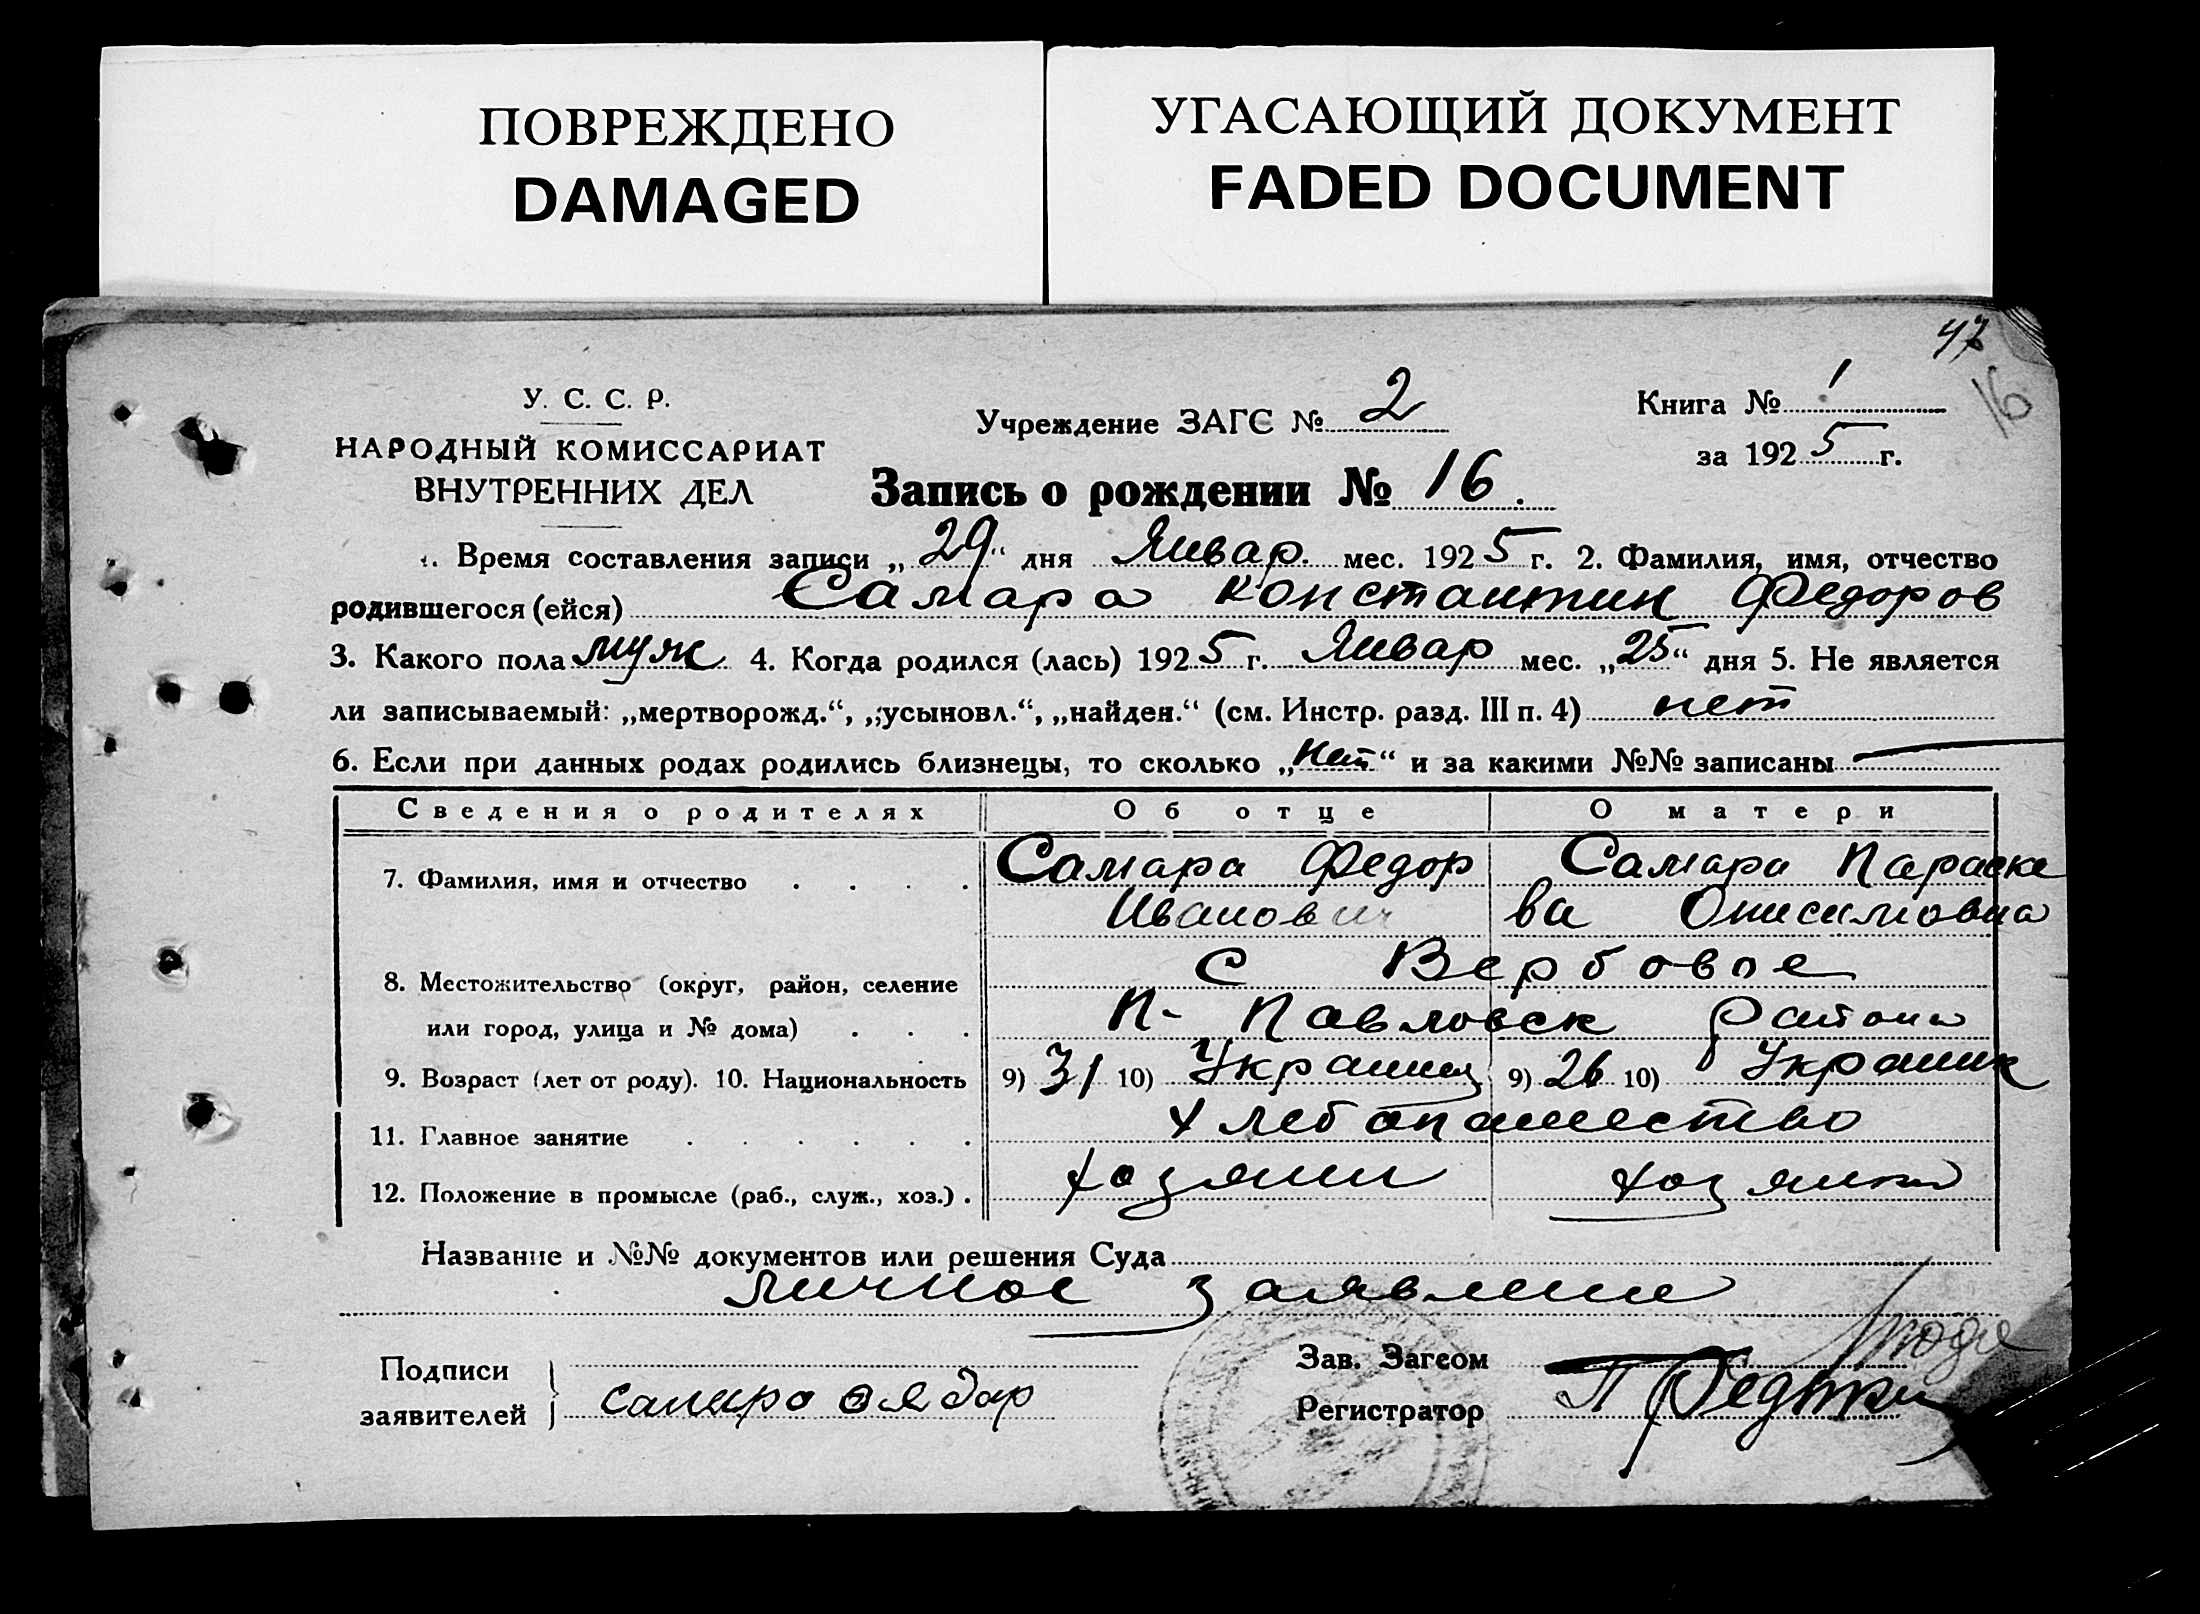 ПОВРЕЖДЕНО
DAMAGED
УГАСАЮЩИЙ ДОКУМЕНТ
FADED DOCUMENT
47
16
У. С. С. Р.
НАРОДНЫЙ КОМИССАРИАТ
ВНУТРЕННИХ ДЕЛ
Учреждение ЗАГС № 2
Книга № 1
за 1925 г.
Запись о рождении № 16.
1. Время составления записи „29“ дня Январ. мес. 1925 г. 2. Фамилия, имя, отчество
родившегося (ейся) Самара Константин Федоров
3. Какого пола муж 4. Когда родился (лась) 1925 г. Январ мес. „25“ дня 5. Не является
ли записываемый: „мертворожд.“, „усыновл.“, „найден.“ (см. Инстр. разд. III п. 4) нет
6. Если при данных родах родились близнецы, то сколько „нет“ и за какими №№ записаны —
Сведения о родителях Об отце О матери
7. Фамилия, имя и отчество Самара Федор Самара Параске
Иванович ва Онисимовна
8. Местожительство (округ, район, селение с Вербовое
или город, улица и № дома) П- Павловск района
9. Возраст (лет от роду). 10. Национальность 9) 31 10) Украинец 9) 26 10) Украинк
11. Главное занятие Хлебопашество
12. Положение в промысле (раб., служ., хоз.). хозяин хозяйка
Название и №№ документов или решения Суда
личное заявление
Подписи
заявителей самара
Зав. Загсом
Регистратор